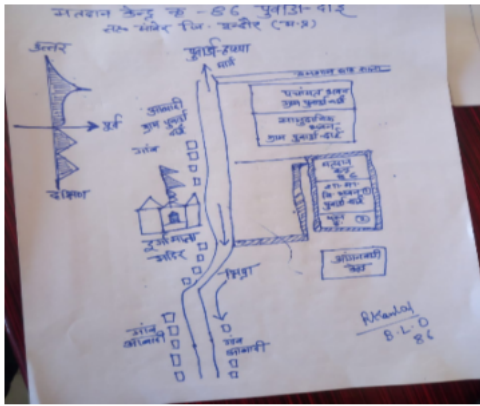 मतदान केन्द्र क्र -86 पुवार्डा-दाई
तह. सांवेर जि. इन्दौर (म.प्र)
उत्तर
पूर्व
दक्षिण
पुवार्डा-हप्पा
मार्ग
आबादी
ग्राम पुवार्डा
दाई
गांव
पंचायत भवन
ग्राम पुवार्डा दाई
सामुदायिक
भवन
ग्राम पुवार्डा-दाई
मतदान
केन्द्र
86
शा. मा.
वि.
पुवार्डा
दाई
आंगनवाड़ी
केन्द्र
दुर्गामाता
मंदिर
गांव
आबादी
गांव
आबादी
B.L.O
86